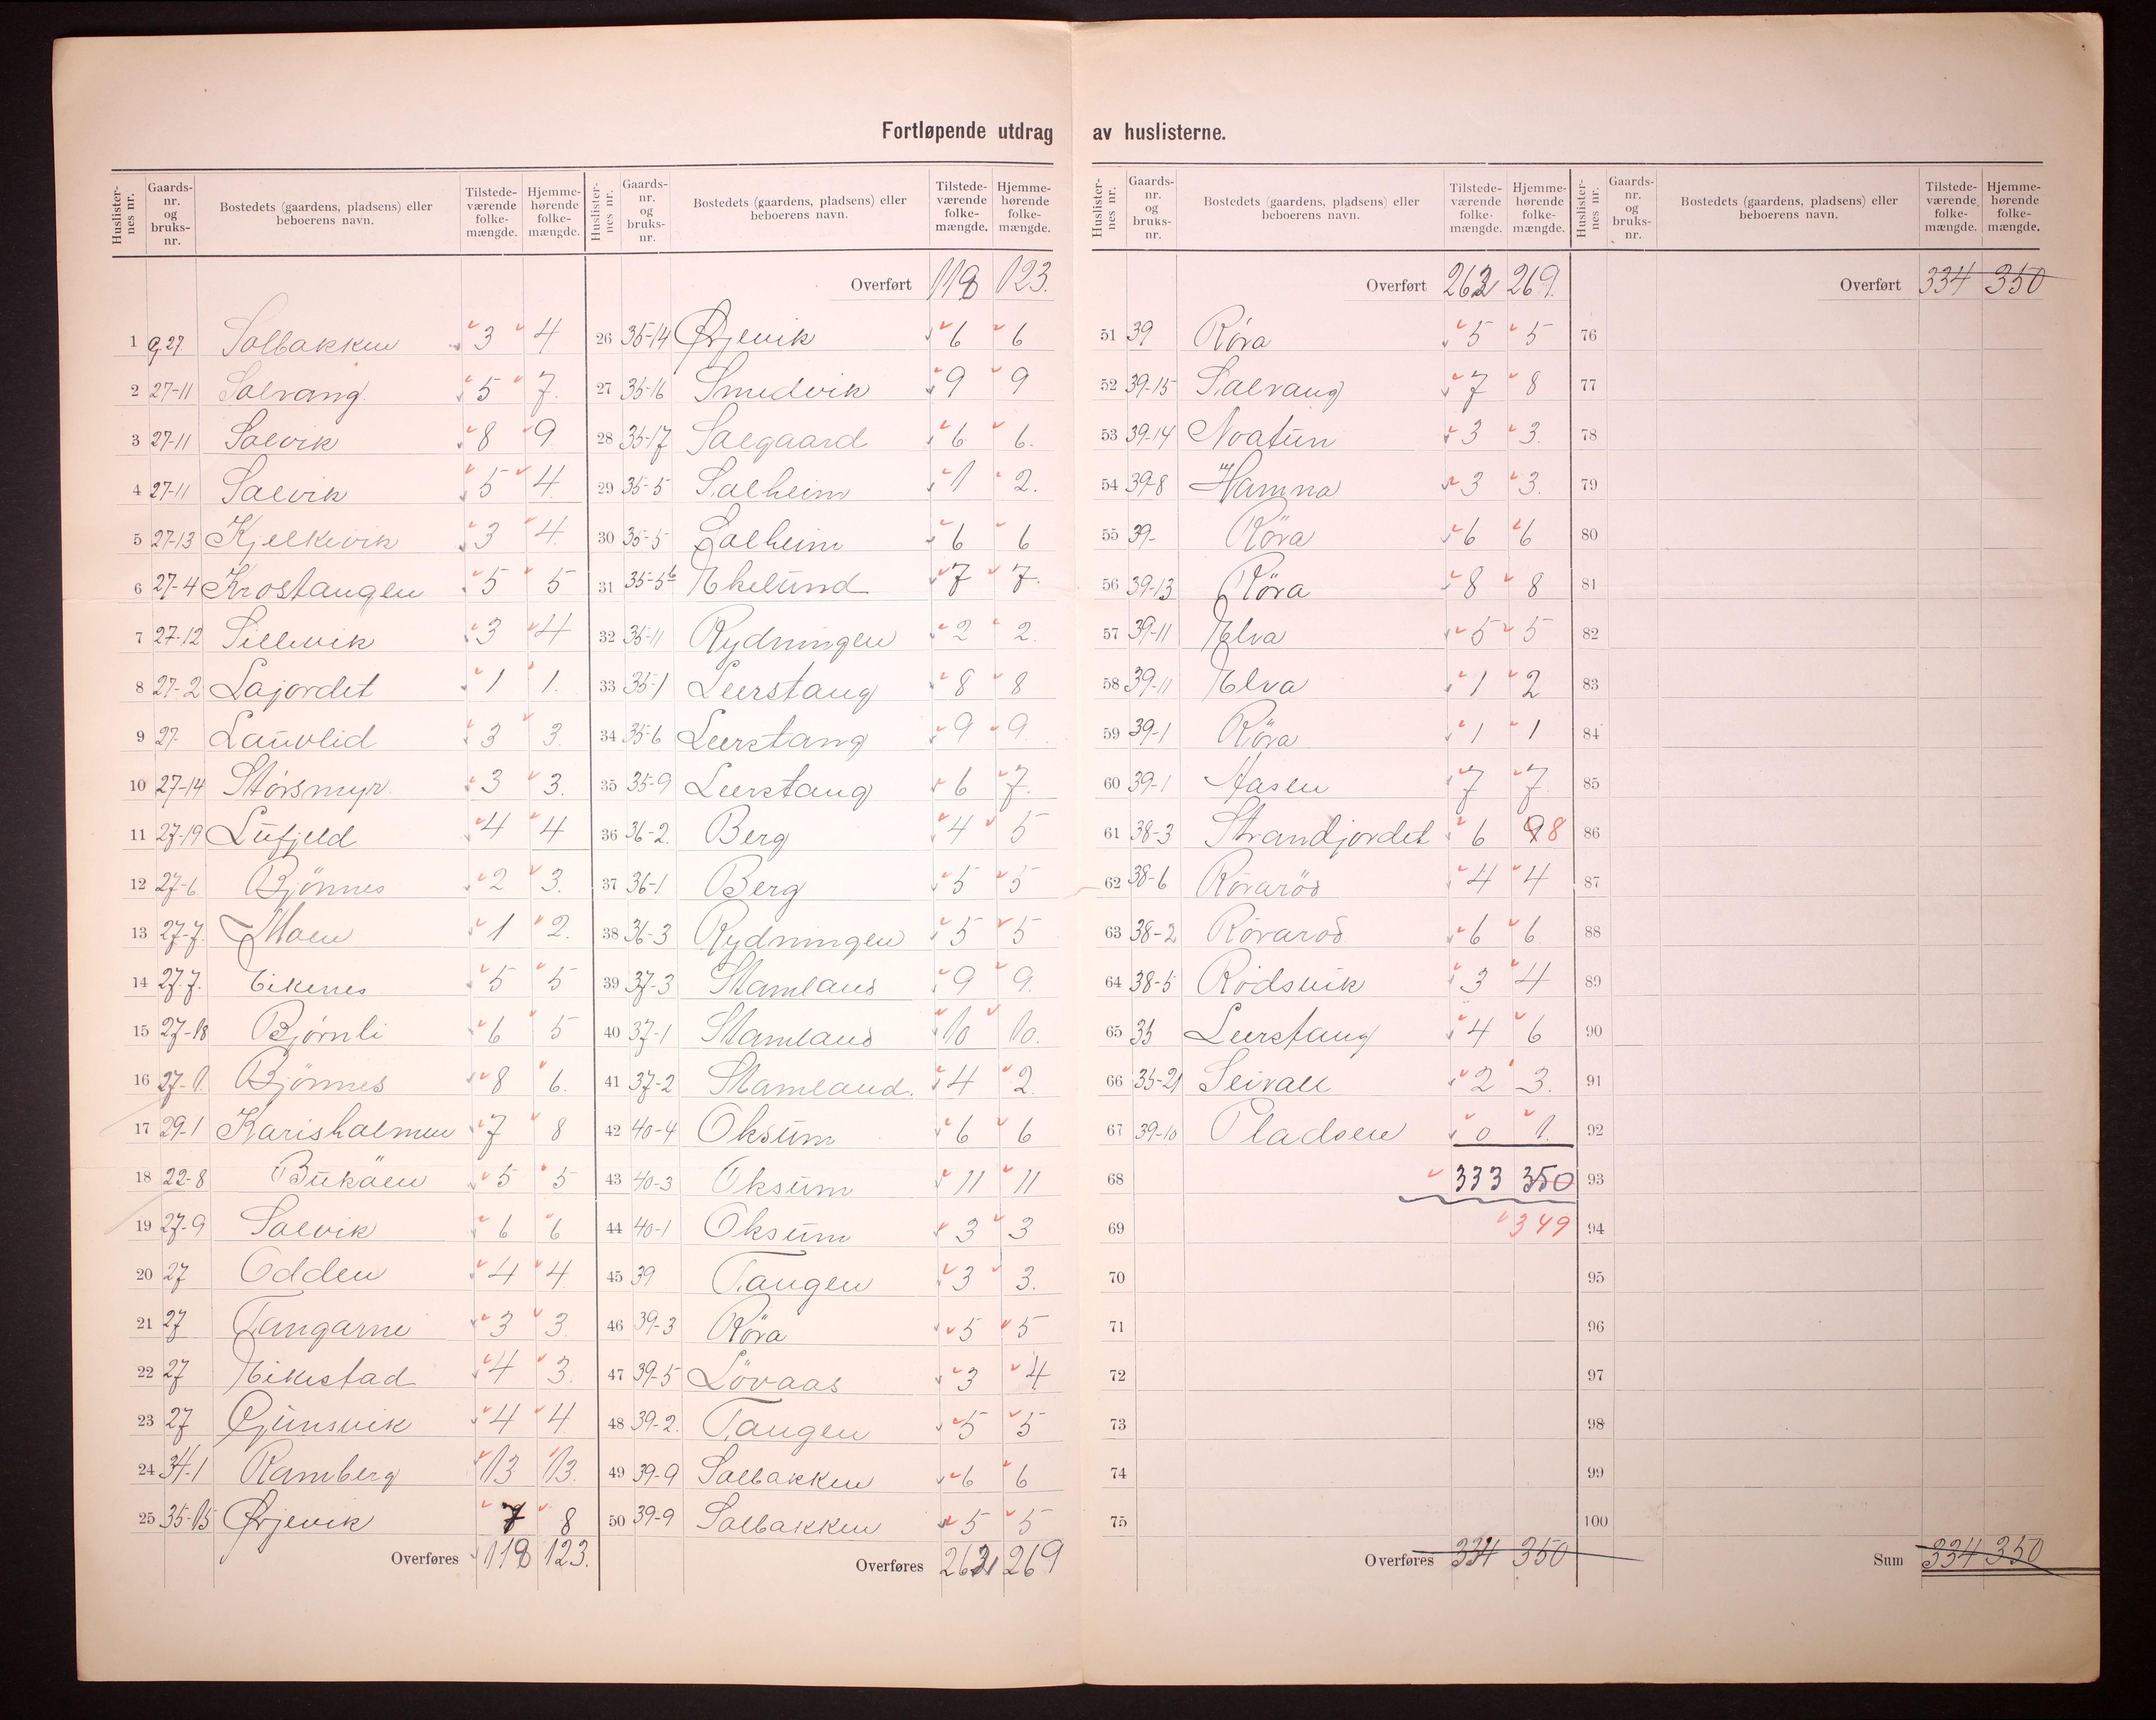 Fortløpende utdrag av huslisterne.
Huslisternes nr. Gaards-nr. og bruks-nr. Bostedets (gaardens, pladsens) eller beboerens navn. Tilstede-værende folke-mængde. Hjemme-hørende folke-mængde.
1 g 27 Solbakken 3 4
2 27-11 Solvang 5 7.
3 27-11 Solvik 8 9
4 27-11 Solvik 5 4
5 27-13 Kjelkevik 3 4
6 27-4 Krostangen 5 5
7 27-12 Sillevik 3 4
8 27-2 Lajordet 1 1.
9 27 Lauvlid 3 3.
10 27-14 Størsmyr 3 3.
11 27-19 Lufjeld 4 4
12 27-6 Bjönnes 2 3.
13 27-7. Moen 1 2.
14 27.7. Eikenes 5 5
15 27-18 Bjørnli 6 5
16 27-1. Bjönnes 8 6.
17 29-1 Karisholmen 7 8
18 22-8 Bukåen 5 5
19 27-9 Solvik 6 6
20 27 Odden 4 4
21 27 Tangarne 3 3
22 27 Eikestad 4 3.
23 27 Gjunsvik 4 4
24 34.1 Ramberg 13 13.
25 35-15 Ørjevik 7 8
Overføres 118 123.
Huslisternes nr. Gaards-nr. og bruks-nr. Bostedets (gaardens, pladsens) eller beboerens navn. Tilstede-værende folke-mængde. Hjemme-hørende folke-mængde.
Overført 118 123.
26 35-14 Ørjevik 6 6
27 35-16 Smedvik 9 9
28 35-17 Solgaard 6 6.
29 35-5 Solheim 1 2.
30 35-5 Solheim 6 6
31 35-5b Ekelund 7 7.
32 35-11 Rydningen 2 2.
33 35-1 Leerstang 8 8
34 35-6 Leerstang 9 9.
35 35-9 Leerstang 6 7.
36 36-2. Berg 4 5
37 36-1 Berg 5 5
38 36-3 Rydningen 5 5
39 37-3 Stamland 9 9.
40 37-1 Stamland 10 10.
41 37-2 Stamland. 4 2.
42 40-4 Oksum 6 6
43 40-3 Oksum 11 11
44 40-1 Oksum 3 3
45 39 Tangen 3 3.
46 39-3 Röra 5 5
47 39-5 Lövaas 3 4
48 39-2. Tangen 5 5
49 39-9 Solbakken 6 6
50 39-9 Solbakken 5 5
Overføres 262 269
Huslisternes nr. Gaards-nr. og bruks-nr. Bostedets (gaardens, pladsens) eller beboerens navn. Tilstede-værende folke-mængde. Hjemme-hørende folke-mængde.
Overført 262 269.
51 39 Röra 5 5
52 39-15 Solvang 7 8
53 39-14 Noatun 3 3.
54 39-8 Hamna 3 3.
55 39- Röra 6 6
56 39-13 Röra 8 8
57 39-11 Elva 5 5
58 39-11 Elva 1 2
59 39-1 Röra 1 1
60 39-1 Aasen 7 7
61 38-3 Strandjordet 6 9 8
62 38-6 Rörarös 4 4
63 38-2 Rörarös 6 6
64 38-5 Rödsvik 3 4
65 35 Leerstang 4 6
66 35-21 Seivall 2 3.
67 39-10 Pladsen 0 1.
68 333 350
69 349
70
71
72
73
74
75
Overføres 334 350
Huslisternes nr. Gaards-nr. og bruks-nr. Bostedets (gaardens, pladsens) eller beboerens navn. Tilstede-værende folke-mængde. Hjemme-hørende folke-mængde.
Overført 334 350
76
77
78
79
80
81
82
83
84
85
86
87
88
89
90
91
92
93
94
95
96
97
98
99
100
Sum 334 350